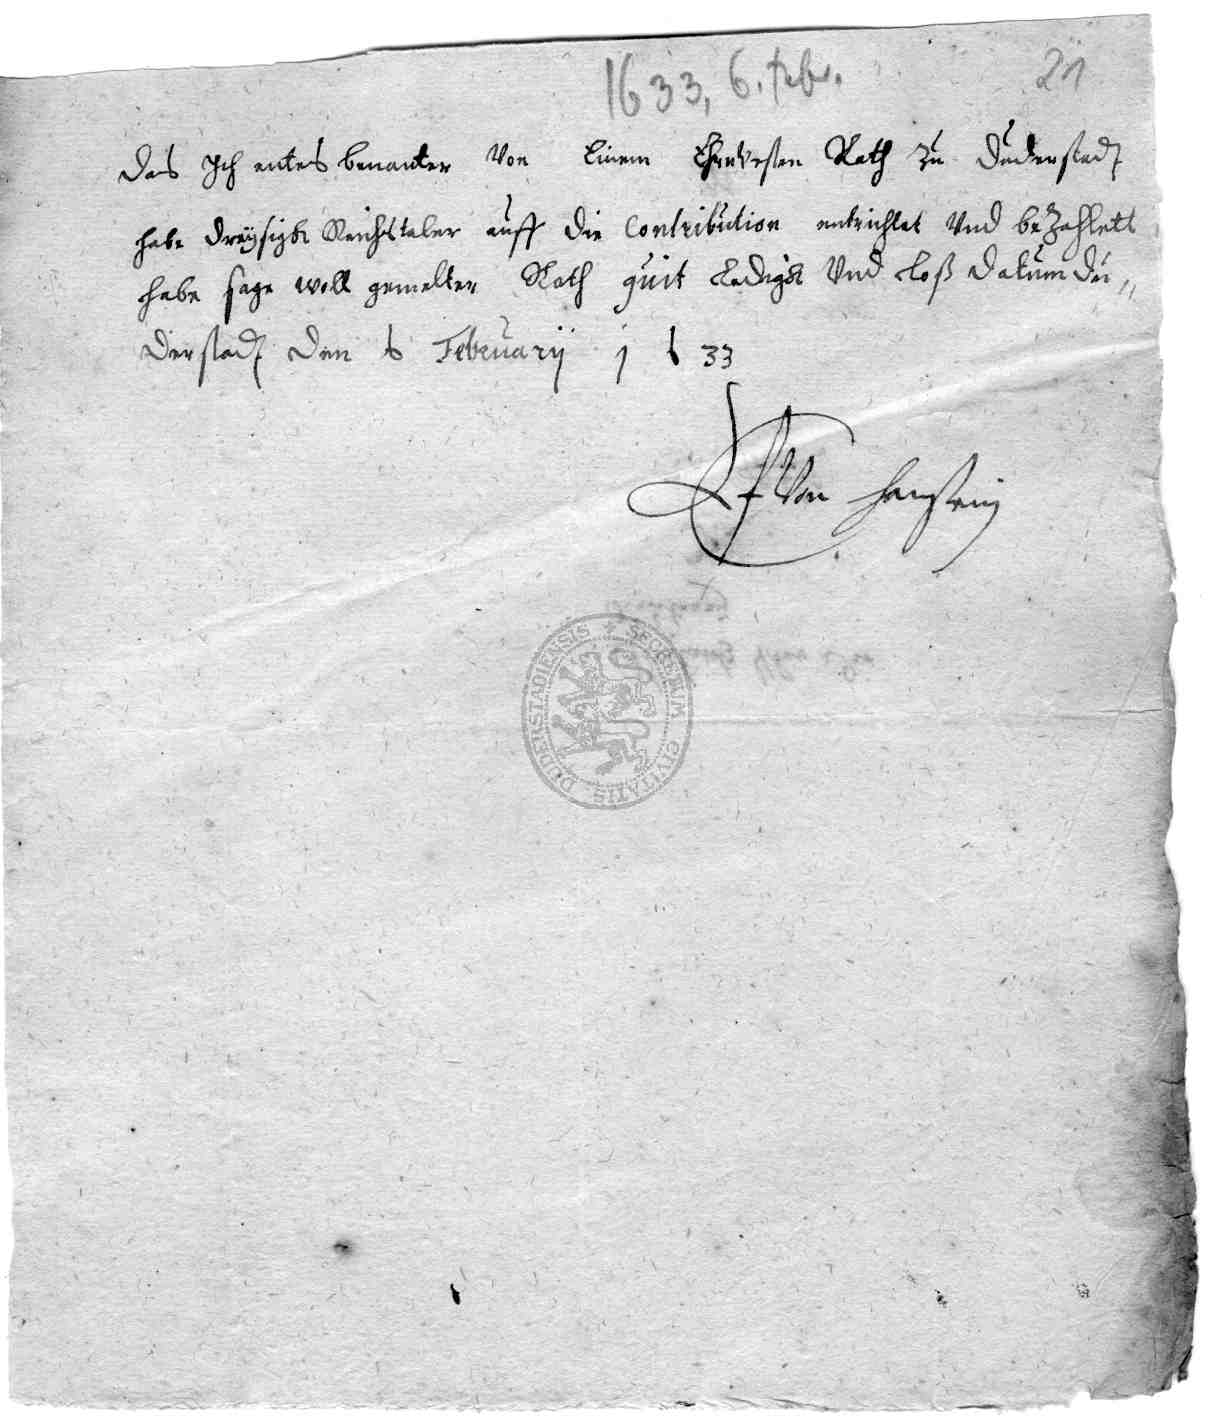 1633, 6. Febr.
21
Das Ich entes benanter Von Einem Ehrnvesten Rath zu Duderstadt
habe dreysigk Reichstaler auff die Contribution entrichtet Vnd bezahlett
habe sage woll gemelten Rath quit Ledigk Vnd Loß Datum Du„
derstadt den 6 February 1 6 33
Von Hanstein
SECRETUM CIVITATIS DUDERSTADIENSIS